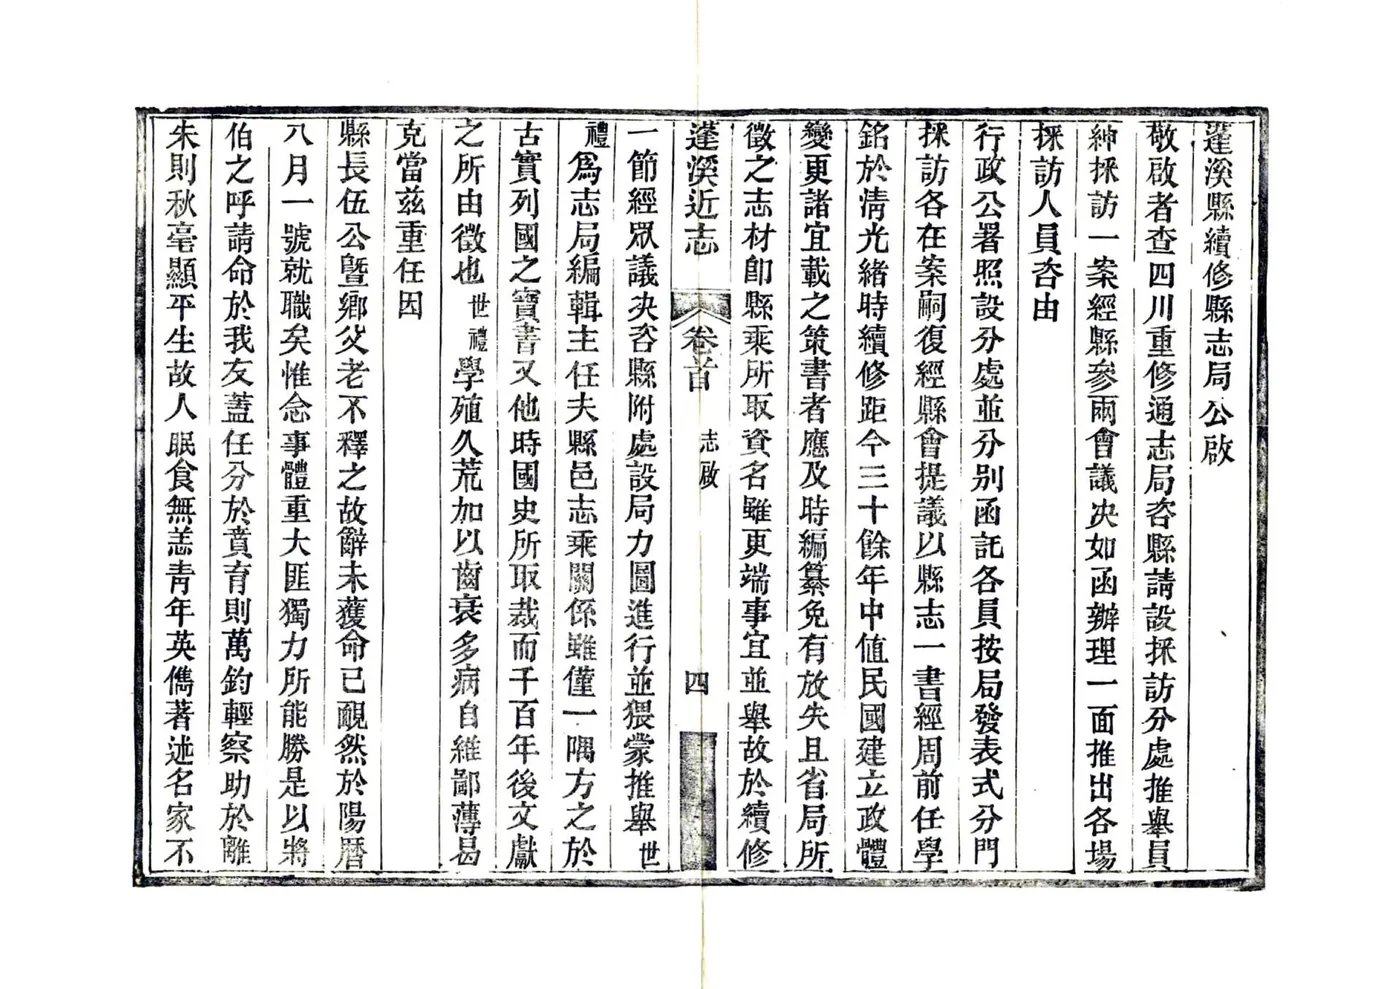 蓬溪縣續修縣志局公啟
敬啟者查四川重修通志局咨縣請設採訪分處推舉員
紳採訪一案經縣參兩會議决如函辦理一面推出各場
採訪人員咨由
行政公署照設分處並分別函託各員按局發表式分門
採訪各在案嗣復經縣會提議以縣志一書經周前任學
銘於清光緒時續修距今三十餘年中值民國建立政體
變更諸宜載之策書者應及時編纂免有放失且省局所
徵之志材卽縣乘所取資名雖更端事宜並舉故於續修
蓬溪近志 卷首 志啟 四
一節經眾議决咨縣附處設局力圖進行並猥蒙推舉世
禮爲志局編輯主任夫縣邑志乘關係雖僅一隅方之於
古實列國之寶書又他時國史所取裁而千百年後文獻
之所由徵也世禮學殖久荒加以齒衰多病自維鄙薄曷
克當茲重任因
縣長伍公曁鄉父老不釋之故辭未獲命已靦然於陽曆
八月一號就職矣惟念事體重大匪獨力所能勝是以將
伯之呼請命於我友蓋任分於賁育則萬鈞輕察助於離
朱則秋毫顯平生故人眠食無恙青年英儁著述名家不